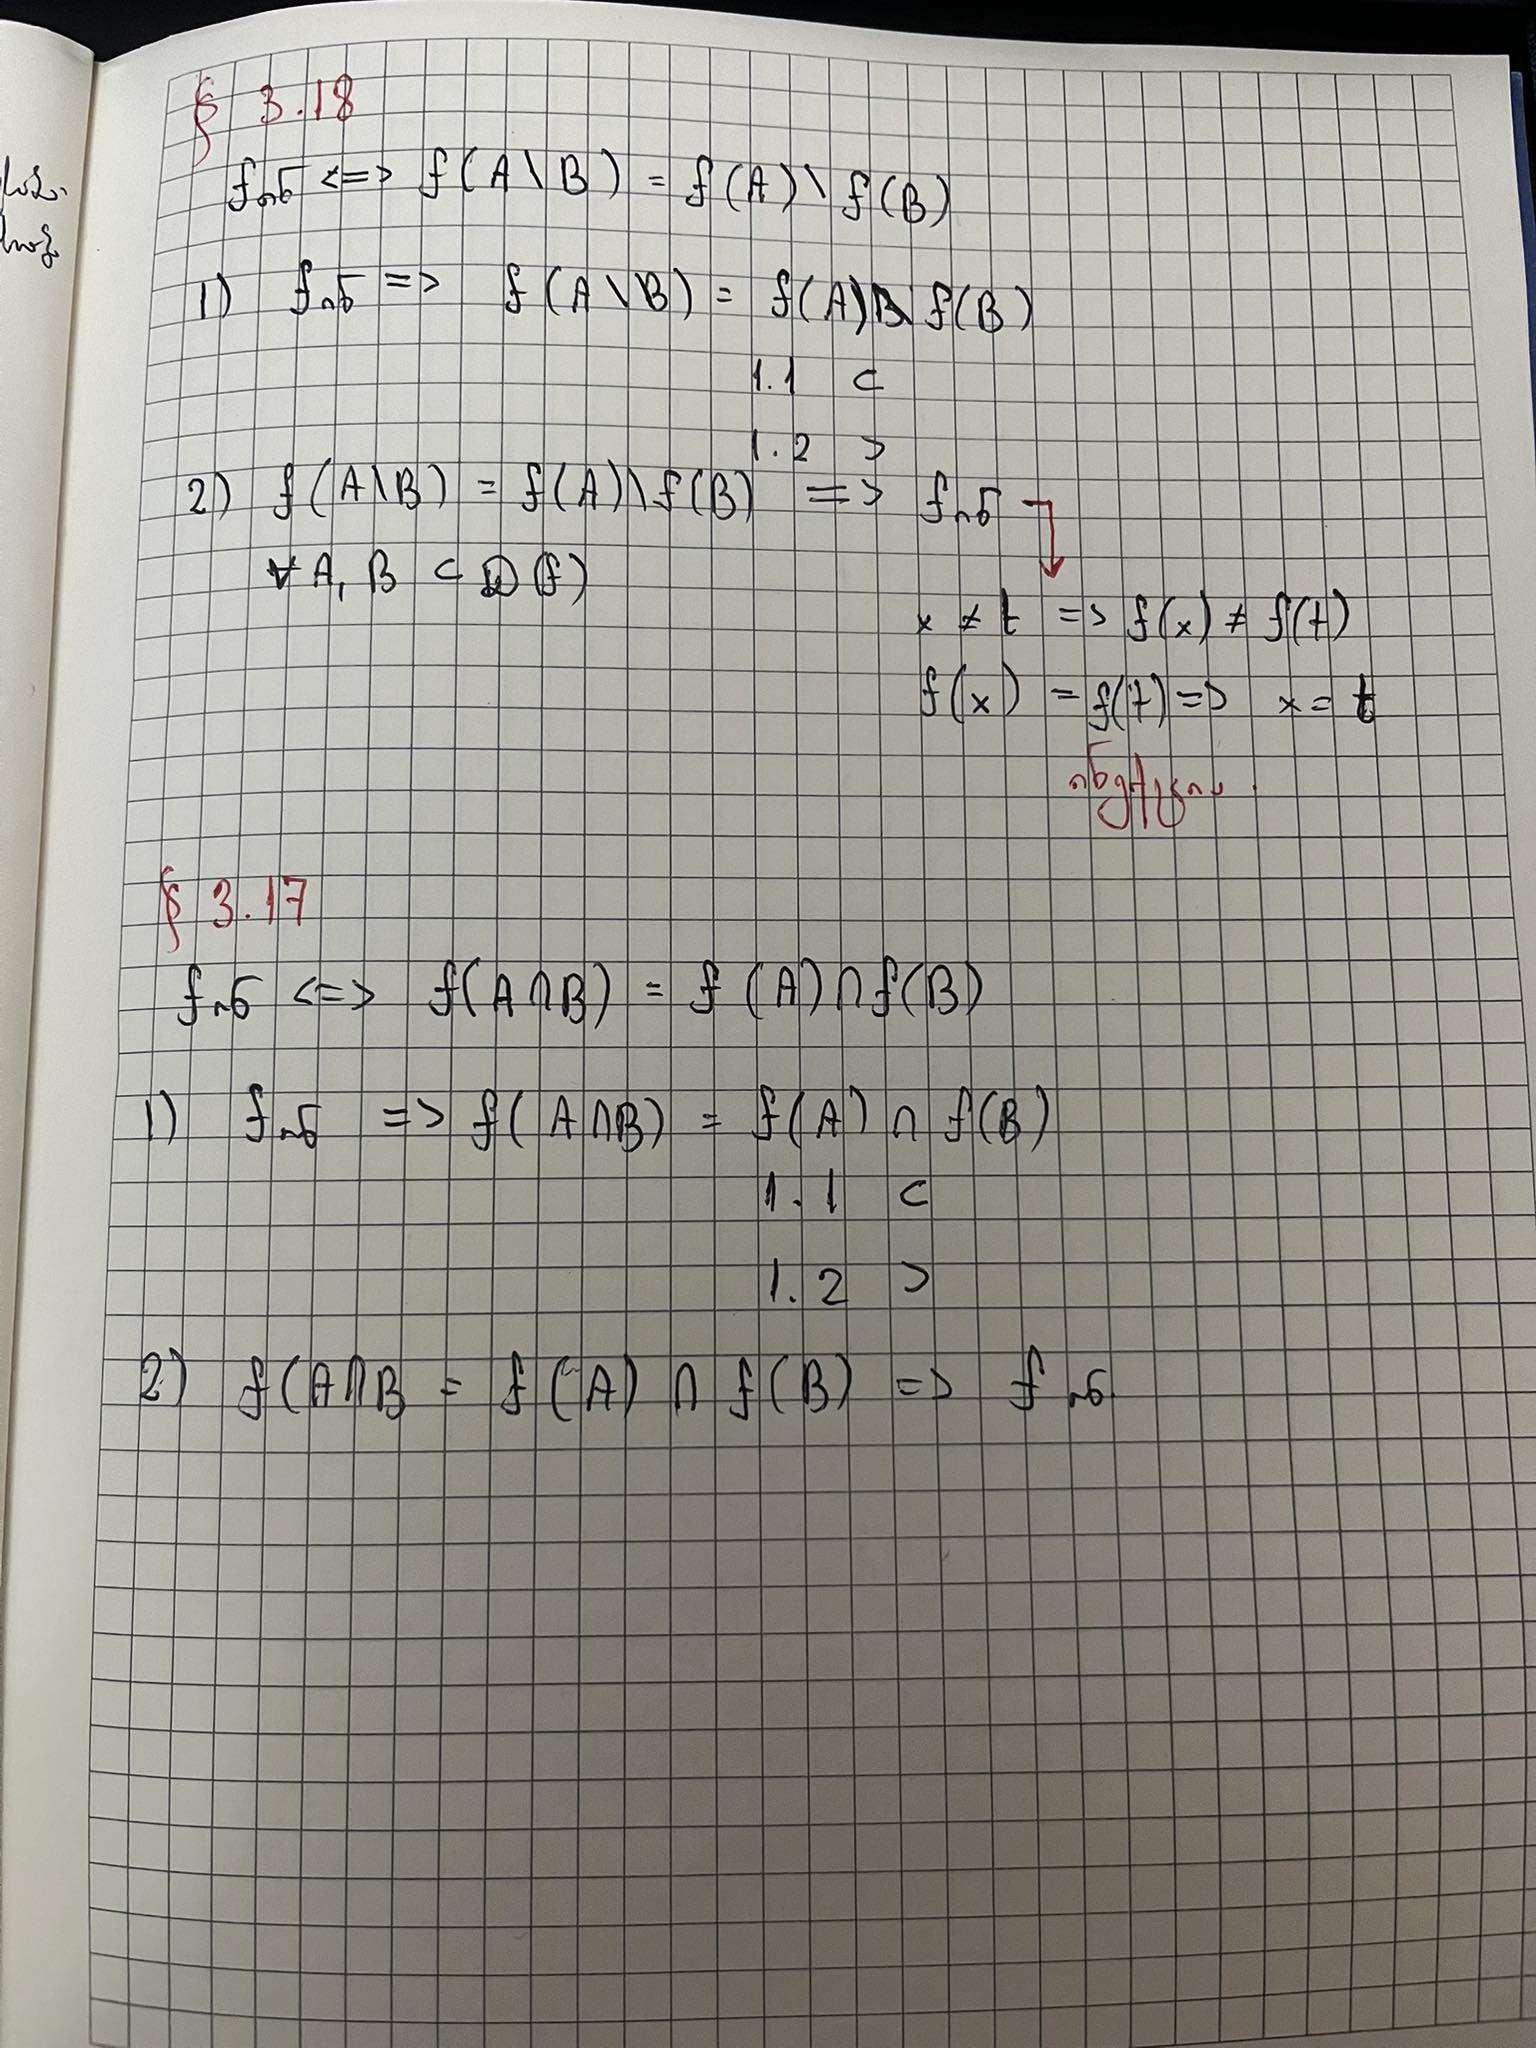 § 3.18
f ინ <=> f(A \ B) = f(A) \ f(B)
1) f ინ => f(A \ B) = f(A) \ f(B)
1.1 ⊂
1.2 ⊃
2) f(A \ B) = f(A) \ f(B) => f ინ
∀ A, B ⊂ D(f)
x ≠ t => f(x) ≠ f(t)
f(x) = f(t) => x = t
§ 3.17
f ინ <=> f(A ∩ B) = f(A) ∩ f(B)
1) f ინ => f(A ∩ B) = f(A) ∩ f(B)
1.1 ⊂
1.2 ⊃
2) f(A ∩ B = f(A) ∩ f(B) => f ინ